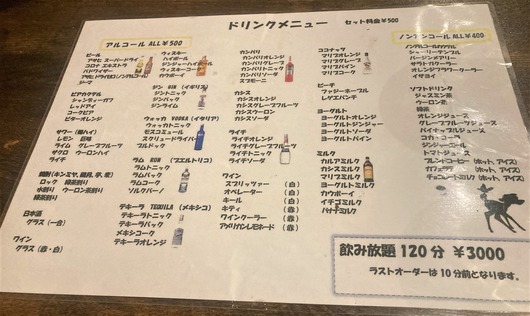 ドリンクメニュー
セット料金¥500
アルコール ALL¥500
ビール
アサヒ スーパードライ
コロナ エキストラ
バドワイザー
アサヒ ドライゼロ(ノンアルコール)
ビアカクテル
シャンディーガフ
レッドアイ
コークビア
ビターオレンジ
サワー (酎ハイ)
レモン 巨峰
ライム グレープフルーツ
ザクロ ウーロンハイ
ライチ
ロック 緑茶割り
水割り ウーロン茶割り
緑茶割り
日本酒
グラス (一合)
ワイン
グラス (赤・白)
ウィスキー
ハイボール
ジンジャーハイボール
コークハイ
ウィスキーコーク
カウボーイ
ジン GIN (イギリス)
ジントニック
ジンバック
ジンライム
ウォッカ VODKA (イタリア)
ウォッカトニック
モスコミュール
スクリュードライバー
ブルドック
ラム RUM (プエルトリコ)
ラムトニック
ラムバック
ラムコーク
ソルクバーノ
テキーラ TEQUILA (メキシコ)
テキーラトニック
テキーラバック
メキシコーク
テキーラオレンジ
カンパリ
カンパリオレンジ
カンパリグレープ
カンパリトニック
カンパリソーダ
スプモーニ
カシス
カシスオレンジ
カシスグレープフルーツ
カシスウーロン
カシスソーダ
ライチ
ライチオレンジ
ライチグレープフルーツ
ライチトニック
ライチソーダ
ワイン
スプリッツァー (白)
オペレーター (白)
キール (白)
キティ (赤)
ワインクーラー (赤)
アメリカンレモネード (赤)
ココナッツ
マリブコーラ
マリブオレンジ
マリブグレープ
マリブパイン
マリブコーク
ピーチ
ファジーネーブル
レゲエパンチ
ヨーグルト
ヨーグルトオレンジ
ヨーグルトジンジャー
ヨーグルトソーダ
ヨーグルトパイン
ミルク
カルアミルク
カシスミルク
マリブミルク
ヨーグルトミルク
カウボーイ
イチゴミルク
バナナミルク
ノンアルコール ALL¥400
ノンアルコールカクテル
シャーリーテンプル
バージンメアリー
サラトガクーラー
オレンジフラワークーラー
イザヨイ
ソフトドリンク
ジャスミン茶
ウーロン茶
緑茶
オレンジジュース
グレープフルーツジュース
パイナップルジュース
コカ・コーラ
ジンジャーエール
トマトジュース
ブレンドコーヒー (ホット、アイス)
カフェラテ (ホット、アイス)
チョコレートミルク (ホット、アイス)
飲み放題 120分 ¥3000
ラストオーダーは10分前となります。